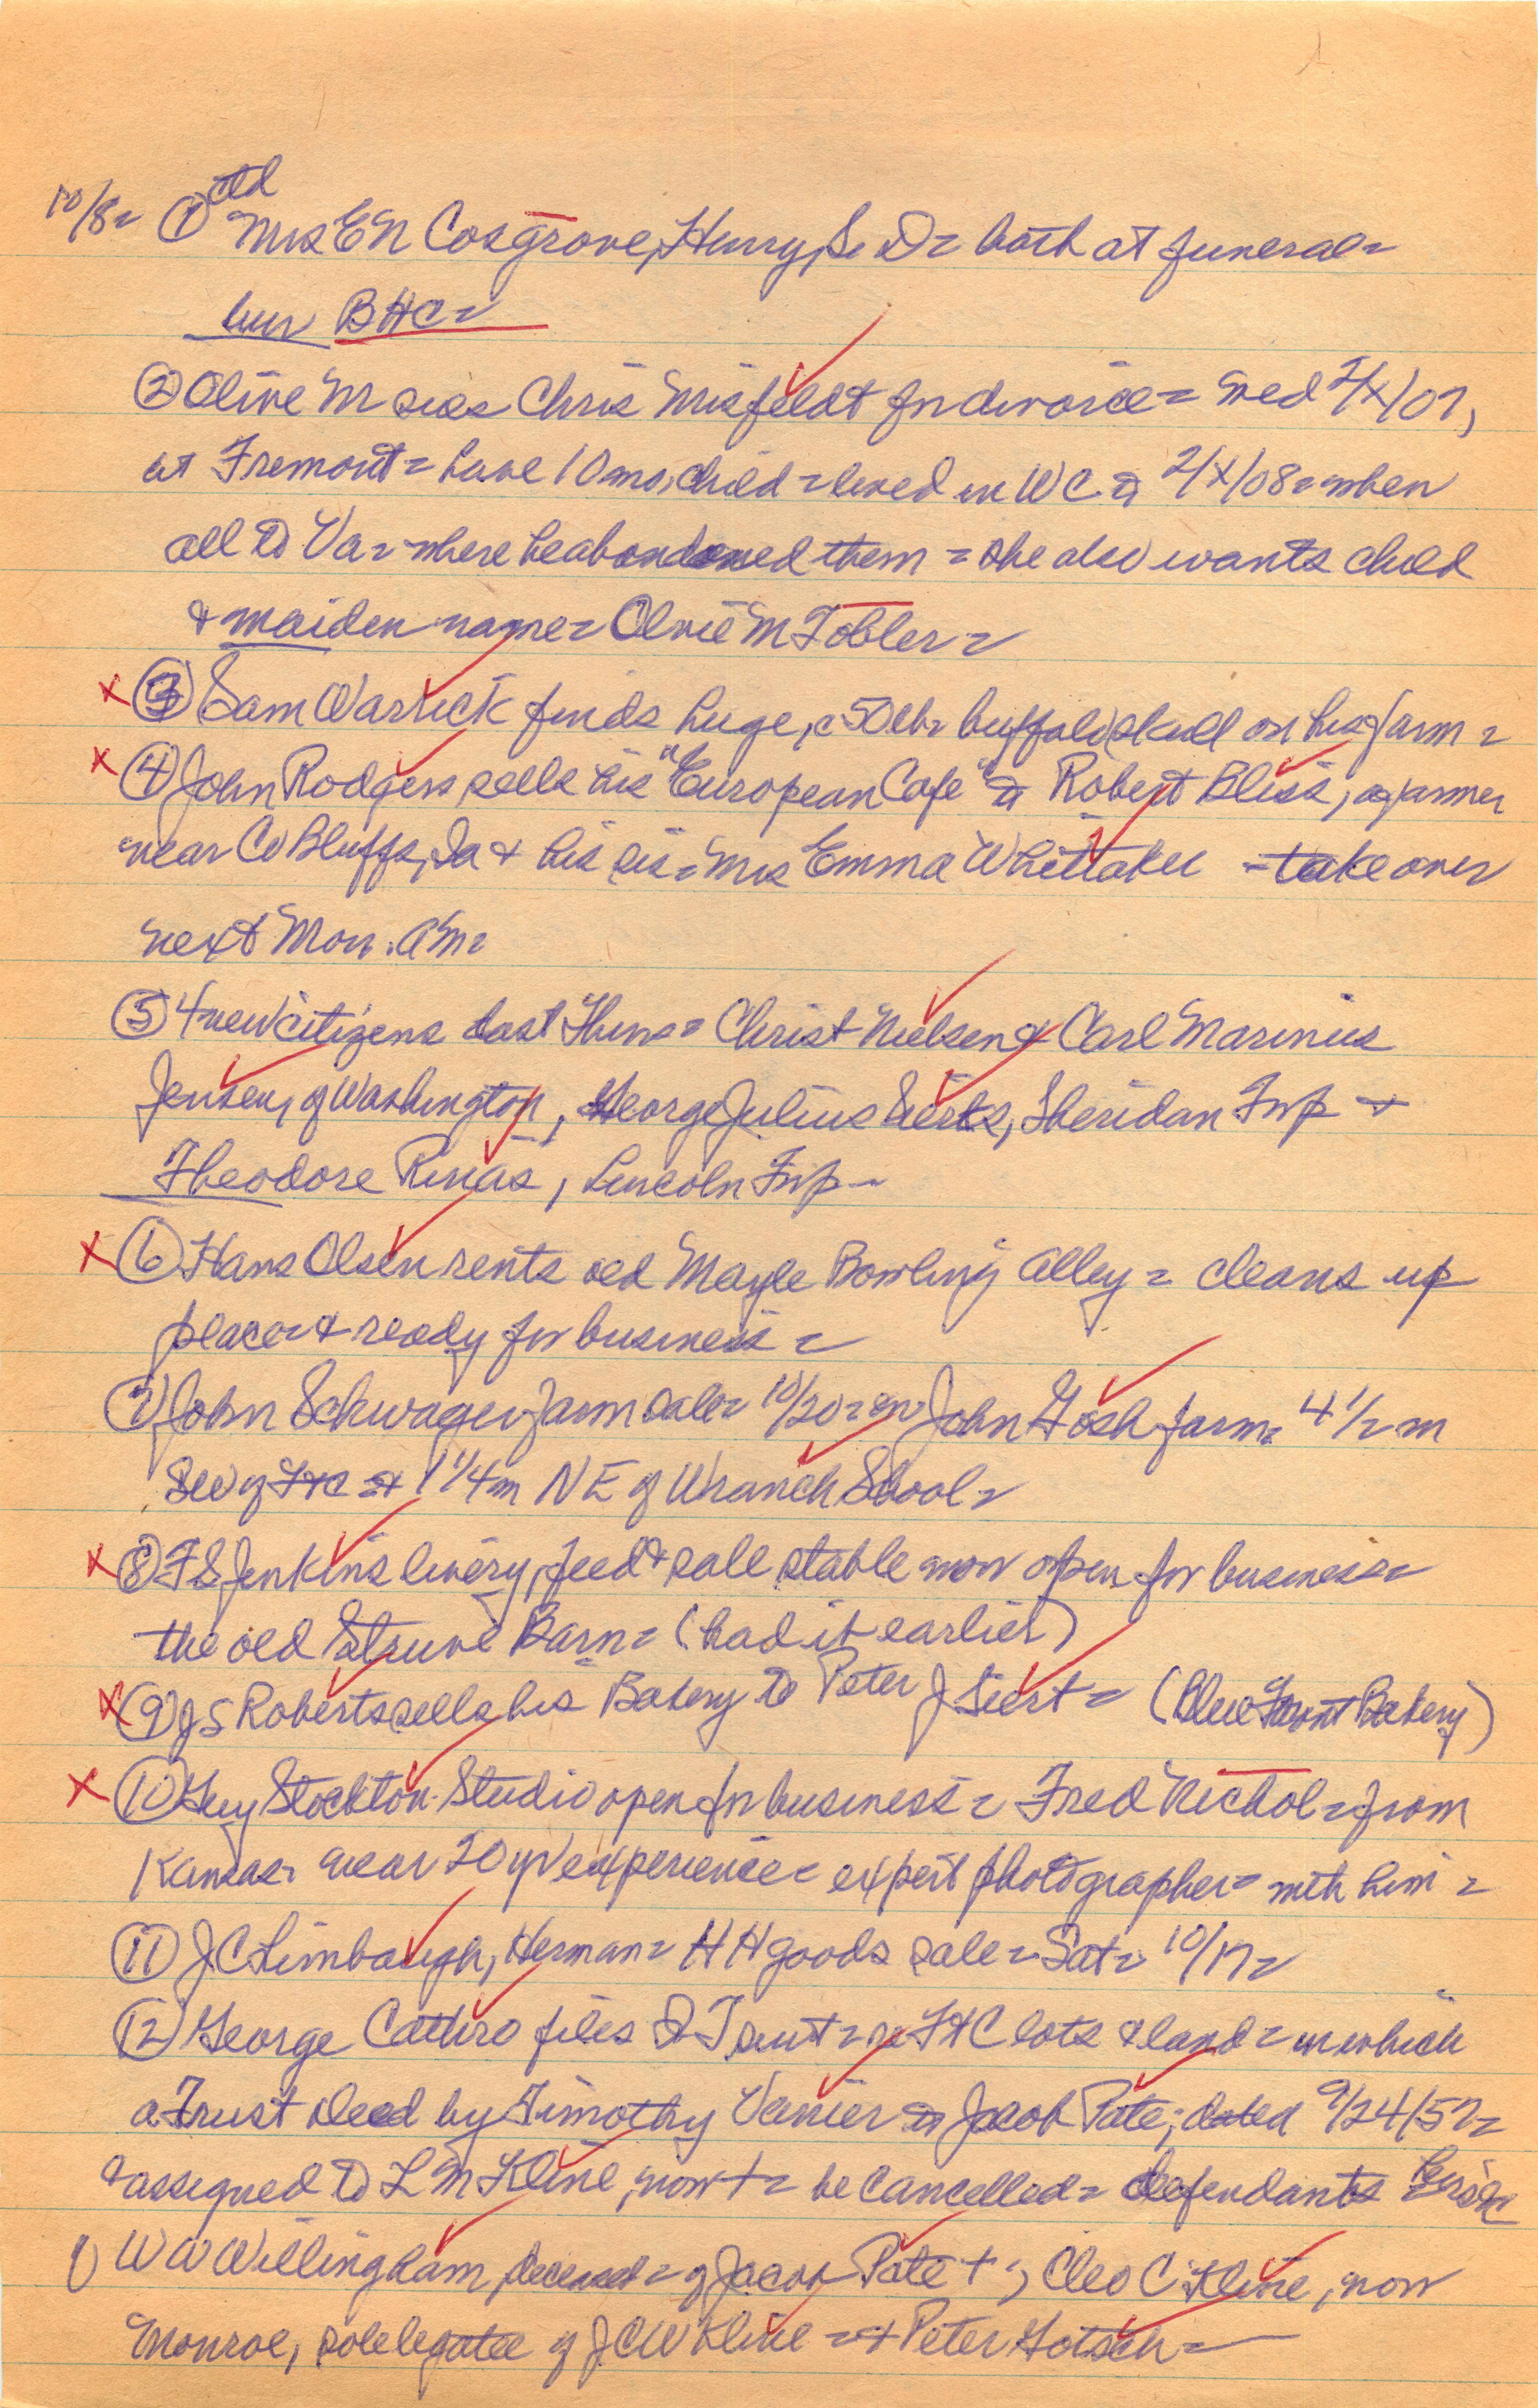 10/8= ① Mrs E N Cosgrove, Henry, S. D= both at funeral=
bur BHC=
② Olive M sues Chris Misfeldt for divorce= wed 2/X/07,
at Fremont= have 10 mo. child= lived in WC to 2/X/08= when
all to Va= where he abandoned them= she also wants child
& maiden name= Olive M Tobler=
x ③ Sam Warrick finds huge, c 50 lb= buffalo skull on his farm=
x ④ John Rodgers sells his "European Cafe" to Robert Bliss, a farmer
near Co Bluffs, Ia & his sis= Mrs Emma Whittaker = take over
next Mon. AM=
⑤ 4 new citizens last Thurs= Christ Nielsen & Carl Marinius
Jensen, of Washington, George Julius Sierks, Sheridan Twp &
Theodore Rinas, Lincoln Twp=
x ⑥ Hans Olsen rents old Mayle Bowling Alley= cleans up
place= & ready for business=
⑦ John Schwager farm sale= 10/20= on John Gosh farm= 4 1/2 m
SW of FtC & 1 1/4 m NE of Wranch School=
x ⑧ F S Jenkins livery, feed & sale stable now open for business=
the old Struve Barn= (had it earlier)
x ⑨ J S Roberts sells his Bakery to Peter J Siert= (Blue Front Bakery)
x ⑩ Guy Stockton Studio open for business= Fred Nichol= from
Kansas= near 20 yr experience= expert photographer= with him=
⑪ J C Limbaugh, Herman= HH goods sale= Sat= 10/17=
⑫ George Cathro files QT suit= re FtC lots & land= in which
a Trust Deed by Timothy Vanier to Jacob Pate, dated 9/24/57=
& assigned to L M Kline, now += be cancelled= defendants
1) W W Willingham, deceased= of Jacob Pate +, Cleo C Kline, now
Monroe, sole legatee of J C W Kline= & Peter Gotsch=